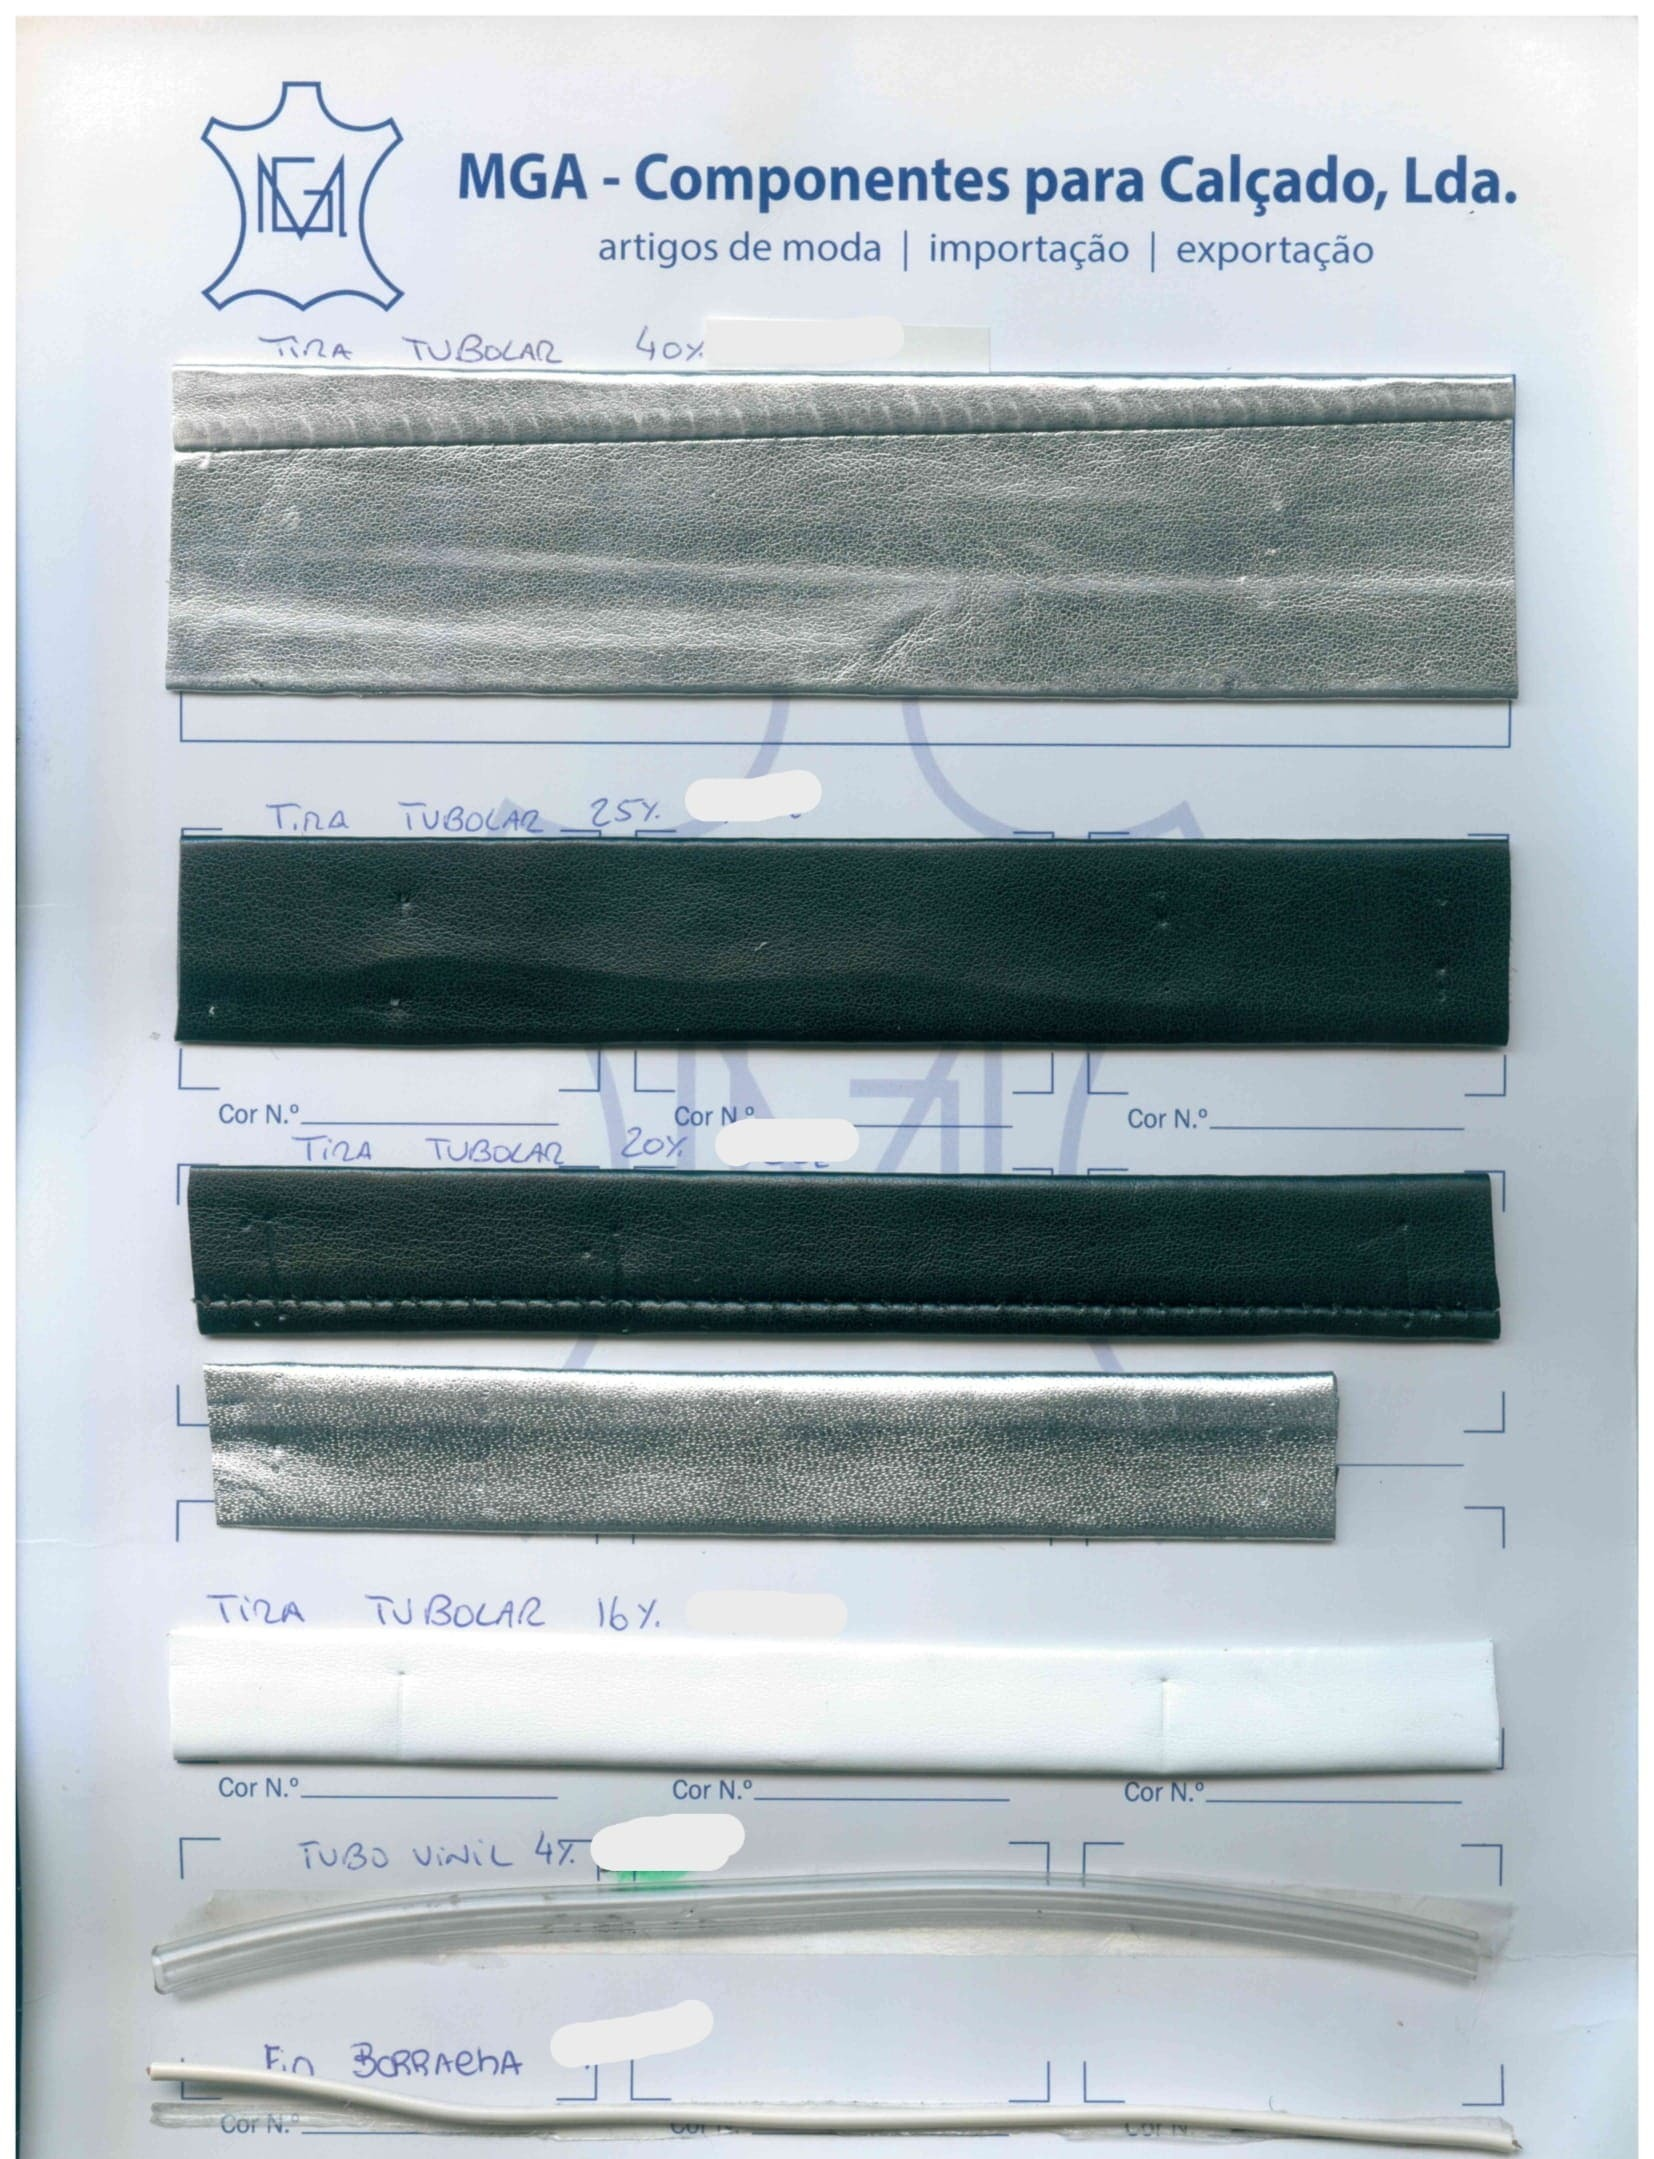 MGA
MGA - Componentes para Calçado, Lda.
artigos de moda | importação | exportação
TiRA TUBOLAR 40%
TiRA TUBOLAR 25%
Cor N.º Cor N.º Cor N.º
TiRA TUBOLAR 20%
TiRA TUBOLAR 16%
Cor N.º Cor N.º Cor N.º
TUBO ViNiL 4%
Fio BORRAchA
Cor N.º Cor N. Cor N.